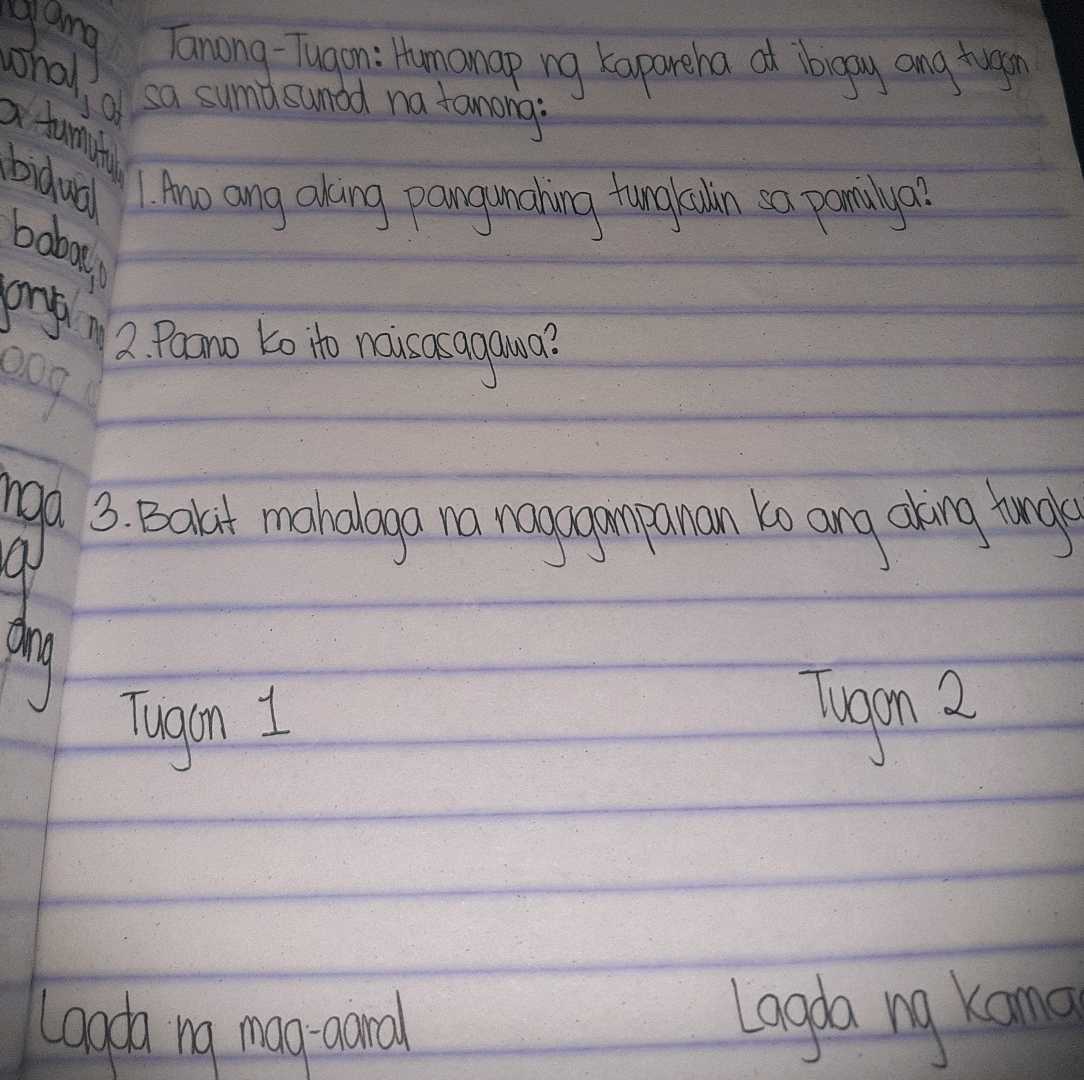 Tanong-Tugon: Humanap ng kapareha at ibigay ang tugon
sa sumusunod na tanong:
1. Ano ang aking pangunahing tungkulin sa pamilya?
2. Paano ko ito naisasagawa?
3. Bakit mahalaga na nagagampanan ko ang aking
Tugon 1 Tugon 2
Lagda ng mag-aaral Lagda ng
mga
ang